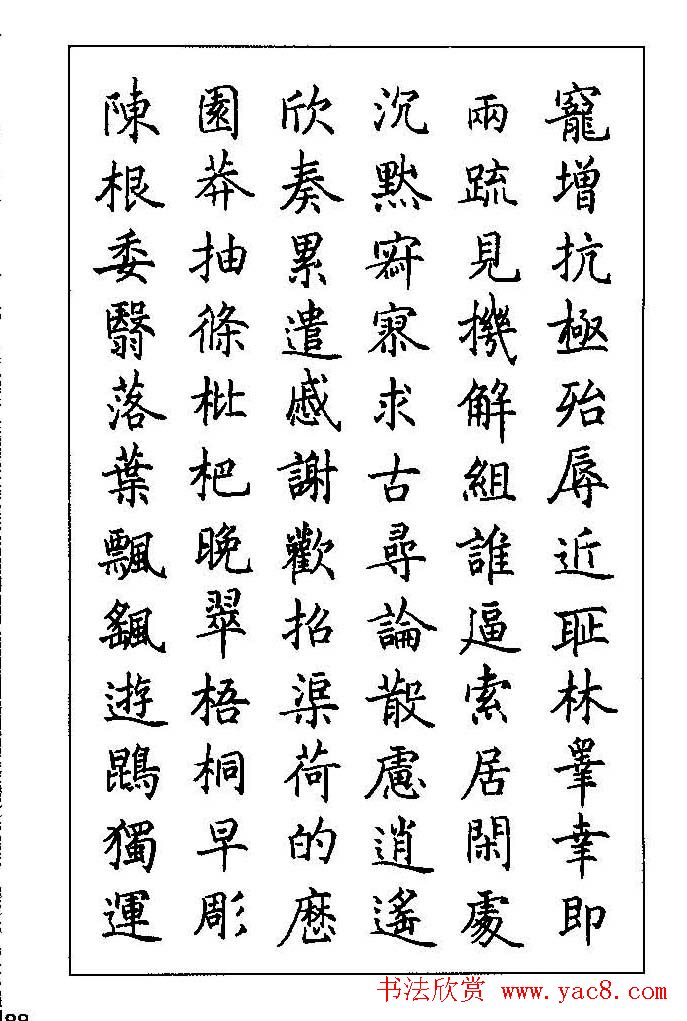 寵增抗極殆辱近恥林睾幸即
兩疏見機解組誰逼索居閑處
沉默寂寥求古尋論散慮逍遙
欣奏累遣慼謝歡招渠荷的歷
園莽抽條枇杷晚翠梧桐早彫
陳根委翳落葉飄颻遊鵾獨運
书法欣赏 www.yac8.com